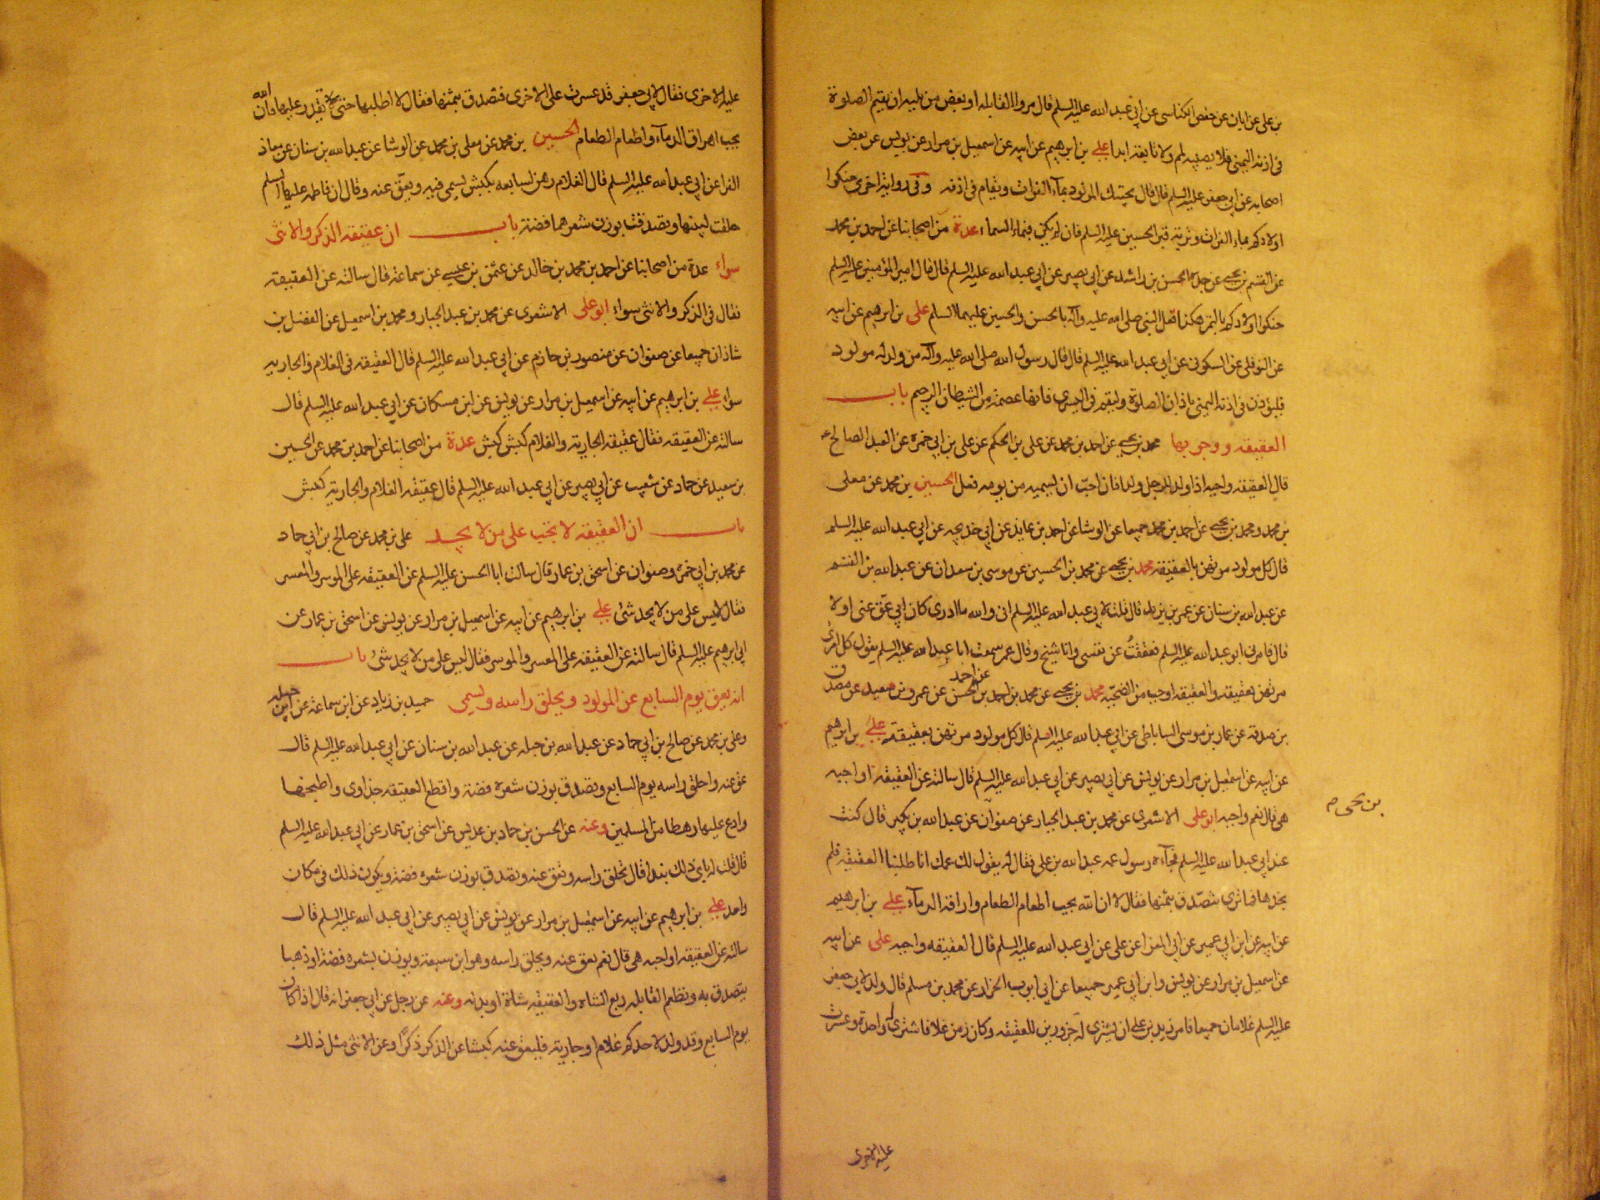 بن علی عن ابان عن حفص الکناسی عن ابی عبد الله علیه السلم قال مروا القابله او بعض من یلیه ان یقیم الصلوة
فی اذنه الیمنی فلا یصیبه لمم ولا تابعه ابدا علی بن ابرهیم عن ابیه عن اسمعیل بن مرار عن یونس عن بعض
اصحابه عن ابی جعفر علیه السلم قال قال یحنک المولود بماء الفرات ویقام فی اذنه وفی روایة اخری حنکوا
اولادکم بماء الفرات وتربة قبر الحسین علیه السلم فان لم یکن فبماء السماء عدة من اصحابنا عن احمد بن محمد
عن القسم بن یحیی عن جده الحسن بن راشد عن ابی بصیر عن ابی عبد الله علیه السلم قال قال امیر المؤمنین علیه السلم
حنکوا اولادکم بالتمر هکذا فعل النبی صلی الله علیه وآله بالحسن والحسین علیهما السلم علی بن ابرهیم عن ابیه
عن النوفلی عن السکونی عن ابی عبد الله علیه السلم قال قال رسول الله صلی الله علیه وآله من ولد له مولود
فلیؤذن فی اذنه الیمنی باذان الصلوة ولیقم فی الیسری فانها عصمة من الشیطان الرجیم باب
العقیقه ووجوبها محمد بن یحیی عن احمد بن محمد عن علی بن الحکم عن علی بن ابی حمزه عن العبد الصالح ع
قال العقیقه واجبه اذا ولد للرجل ولد فان احب ان یسمیه من یومه فعل الحسین بن محمد عن معلی
بن محمد ومحمد بن یحیی عن احمد بن محمد جمیعا عن الوشا عن احمد بن عائذ عن ابی خدیجه عن ابی عبد الله علیه السلم
قال کل مولود مرتهن بالعقیقه محمد بن یحیی عن محمد بن الحسین عن موسی بن سعدان عن عبد الله بن القسم
عن عبد الله بن سنان عن عمر بن یزید قال قلت لابی عبد الله علیه السلم انی والله ما ادری کان ابی عق عنی او لا
قال فامرنی ابو عبد الله علیه السلم فعققتُ عن نفسی وانا شیخ وقال عمر سمعت ابا عبد الله علیه السلم یقول کل امرئ
مرتهن بعقیقته والعقیقه اوجب من الضحیّه محمد بن یحیی عن محمد بن احمد عن احمد بن الحسن عن عمرو بن سعید عن مصدق
بن صدقه عن عمار بن موسی الساباطی عن ابی عبد الله علیه السلم قال کل مولود مرتهن بعقیقته علی بن ابرهیم
عن ابیه عن اسمعیل بن مرار عن یونس عن ابی بصیر عن ابی عبد الله علیه السلم قال سالته عن العقیقه اواجبه
هی قال نعم واجبه ابو علی الاشعری عن محمد بن عبد الجبار عن صفوان عن عبد الله بن بکیر قال کنت
بن یحیی م
عند ابی عبد الله علیه السلم فجآءه رسول عمه عبد الله بن علی فقال له یقول لک عمک انا طلبنا العقیقه فلم
نجدها فما تری نتصدق بثمنها فقال لا ان الله یحب اطعام الطعام واراقة الدمآء علی بن ابرهیم
عن ابیه عن ابن ابی عمیر عن ابی المغرا عن علی عن ابی عبد الله علیه السلم قال العقیقه واجبه علی عن ابیه
عن اسمعیل بن مرار عن یونس وابن ابی عمیر جمیعا عن ابی ایوب الخزاز عن محمد بن مسلم قال ولد لابی جعفر
علیه السلم غلامان جمیعا فامر زید بن علی ان یشتری له جزورین للعقیقه وکان زمن غلا فاشتری له واحدة وعسرت
علیه الاخری
علیه الاخری فقال لابی جعفر قد عسرت علی الاخری فتصدق بثمنها فقال لا اطلبها حتی تقدر علیها فان الله
یحب اهراق الدمآء واطعام الطعام الحسین بن محمد عن معلی بن محمد عن الوشا عن عبد الله بن سنان عن معاذ
الفرا عن ابی عبد الله علیه السلم قال الغلام رهن بسابعه بکبش یسمی فیه ویعق عنه وقال ان فاطمه علیها السلم
حلقت ابنیها وتصدقت بوزن شعرهما فضة باب ان عقیقه الذکر والانثی
سواء عدة من اصحابنا عن احمد بن محمد بن خالد عن عثمن بن عیسی عن سماعة قال سالته عن العقیقه
فقال فی الذکر والانثی سواء ابو علی الاشعری عن محمد بن عبد الجبار ومحمد بن اسمعیل عن الفضل بن
شاذان جمیعا عن صفوان عن منصور بن حازم عن ابی عبد الله علیه السلم قال العقیقه فی الغلام والجاریه
سواء علی بن ابرهیم عن ابیه عن اسمعیل بن مرار عن یونس عن ابن مسکان عن ابی عبد الله علیه السلم قال
سالته عن العقیقه فقال عقیقه الجاریة والغلام کبش کبش عدة من اصحابنا عن احمد بن محمد عن الحسین
بن سعید عن حماد عن شعیب عن ابی بصیر عن ابی عبد الله علیه السلم قال عقیقه الغلام والجاریة کبش
باب ان العقیقه لا تجب علی من لا یجد علی بن محمد عن صالح بن ابی حماد
عن محمد بن ابی حمزه وصفوان عن اسحق بن عمار قال سالت ابا الحسن علیه السلم عن العقیقه علی الموسر والمعسر
فقال لیس علی من لا یجد شئ علی بن ابرهیم عن ابیه عن اسمعیل بن مرار عن یونس عن اسحق بن عمار عن
ابی ابرهیم علیه السلم قال سالته عن العقیقه علی المعسر والموسر فقال لیس علی من لا یجد شئ باب
انه یعق یوم السابع عن المولود ویحلق راسه ویسمی حمید بن زیاد عن ابن سماعة عن ابن جبله
وعلی بن محمد عن صالح بن ابی حماد عن عبد الله بن جبله عن عبد الله بن سنان عن ابی عبد الله علیه السلم قال
عق عنه واحلق راسه یوم السابع وتصدق بوزن شعره فضة واقطع العقیقه جذاوی واطبخها
وادع علیها رهطا من المسلمین وعنه عن الحسن بن حماد بن عدیس عن اسحق بن عمار عن ابی عبد الله علیه السلم
قال قلت له بای ذلک نبدا قال تحلق راسه وتعق عنه وتصدق بوزن شعره فضة ویکون ذلک فی مکان
واحد علی بن ابرهیم عن ابیه عن اسمعیل بن مرار عن یونس عن ابی بصیر عن ابی عبد الله علیه السلم قال
سالته عن العقیقه اواجبه هی قال نعم یعق عنه ویحلق راسه وهو ابن سبعة ویوزن شعره فضة او ذهبا
یتصدق به وتطعم القابله ربع الشاة والعقیقه شاة او بدنه وعنه عن رجل عن ابی جعفر انه قال اذا کان
یوم السابع وقد ولد لاحدکم غلام او جاریة فلیعق عنه کبشا عن الذکر ذکرًا وعن الانثی مثل ذلک